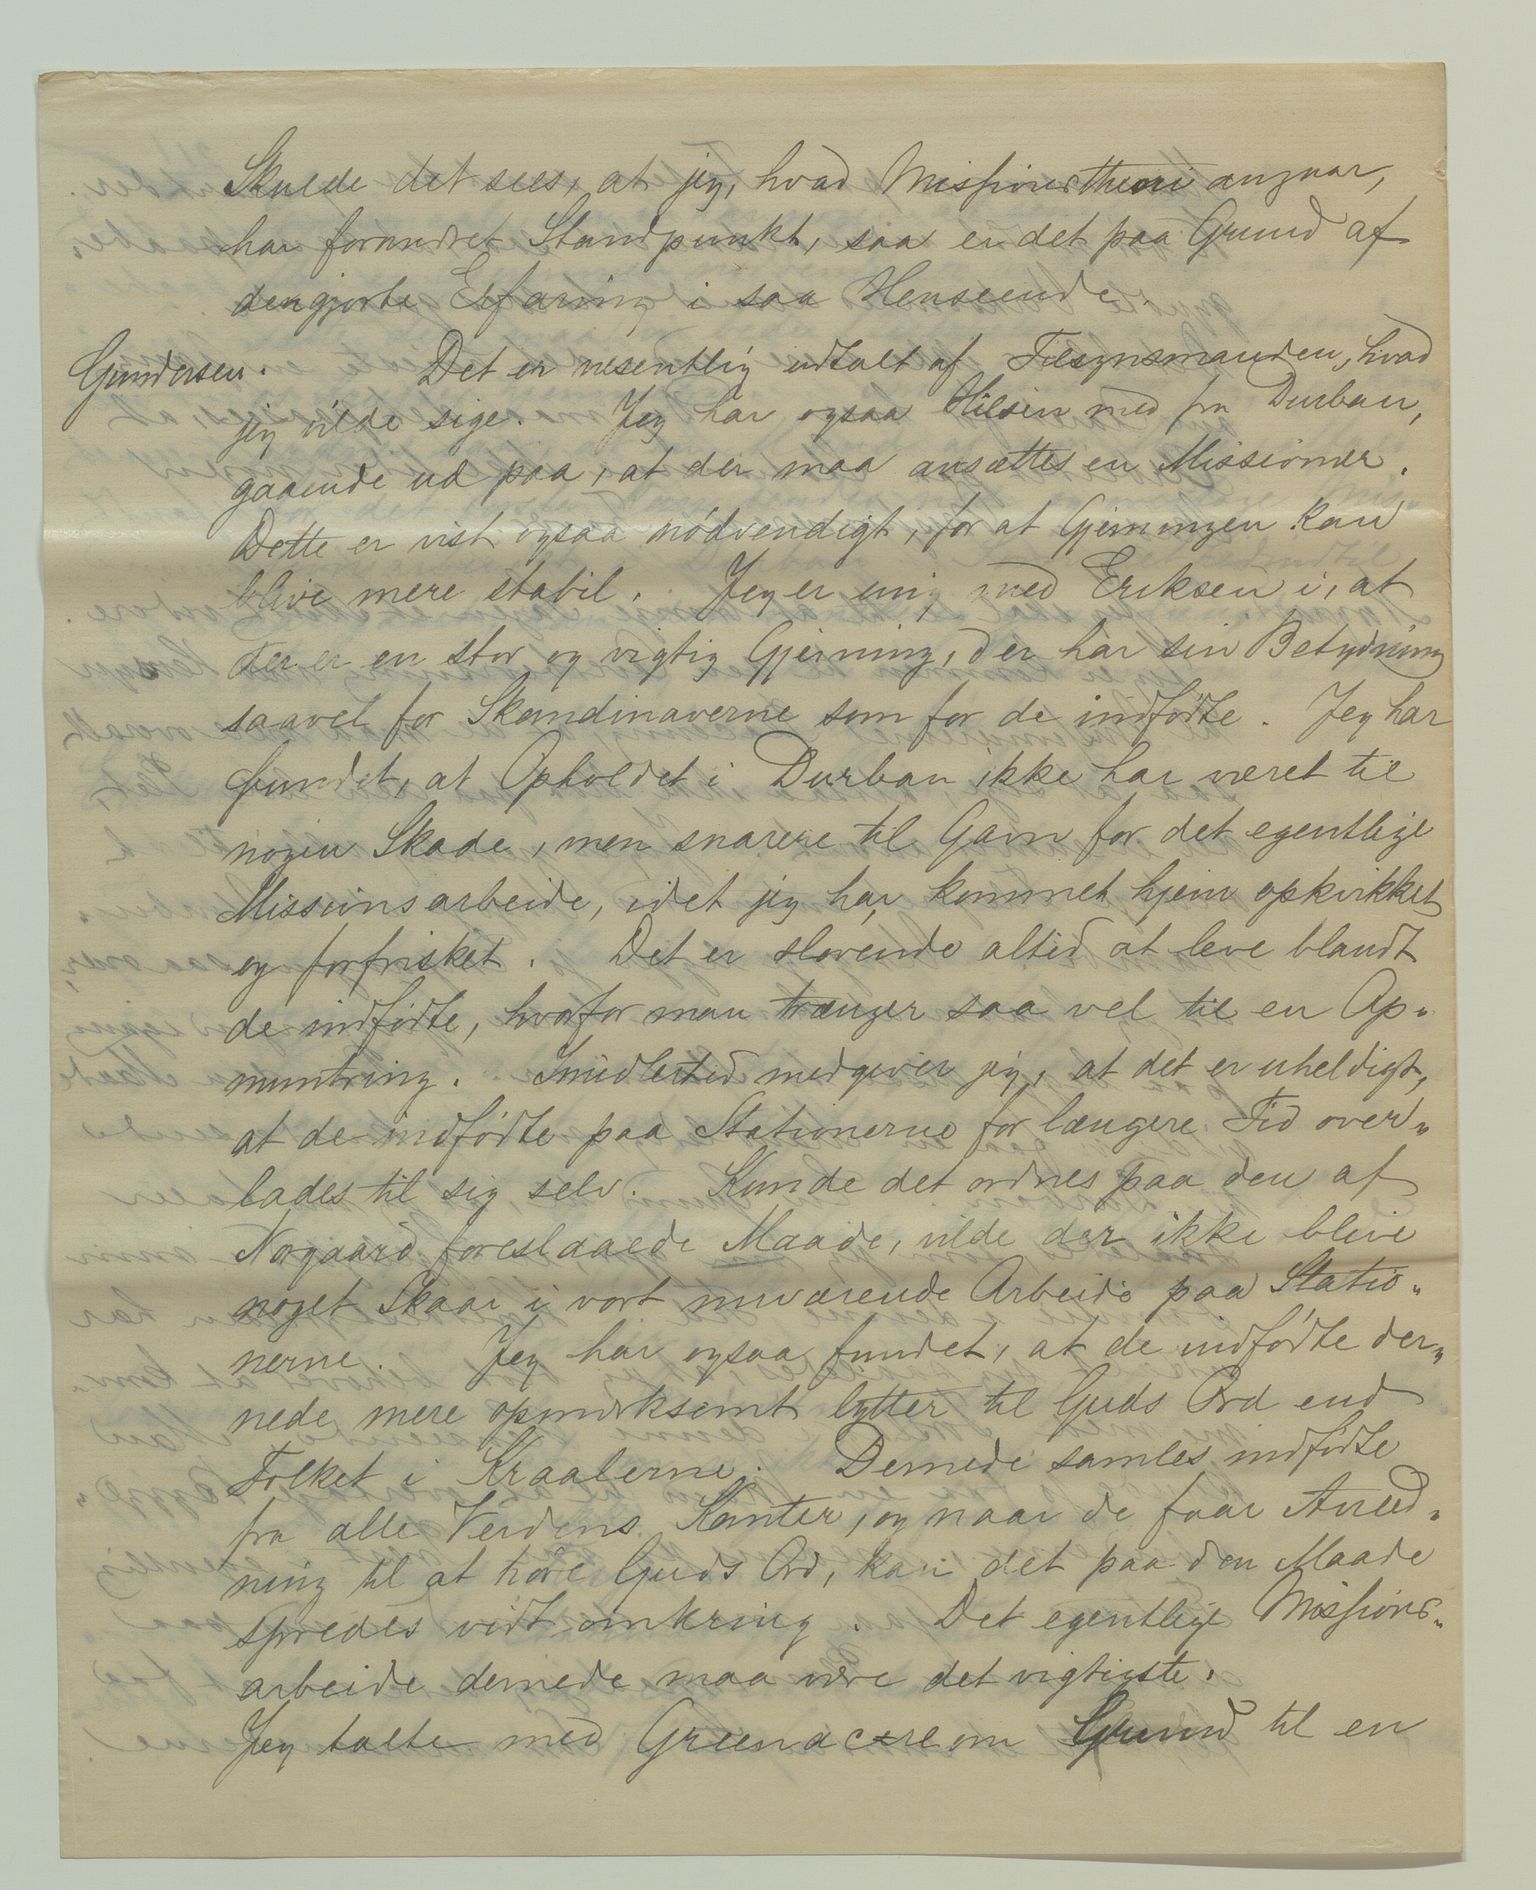 Skulde det sees, at jeg, hvad Missionstheori angaar,
har forandret Standpunkt, saa er det paa Grund af
den gjorte Erfaring i saa Henseende.
Gundersen. Det er vesentlig udtalt af Tilsynsmanden, hvad
jeg vilde sige. Jeg har ogsaa Hilsen med fra Durban,
gaaende ud paa, at der maa ansættes en Missionær.
Dette er vist ogsaa nödvendigt, for at Gjerningen kan
blive mere stabil. Jeg er enig med Eriksen i, at
der er en stor og vigtig Gjerning, der har sin Betydning
saavel for Skandinaverne som for de indfödte. Jeg har
fundet, at Opholdet i Durban ikke har været til
nogen Skade, men snarere til Gavn for det egentlige
Missionsarbeide, idet jeg har kommet hjem opkvikket
og forfrisket. Det er slövende altid at leve blandt
de indfödte, hvorfor man trænger saa vel til en Op„
muntring. Imidlertid medgiver jeg, at det er uheldigt,
at de indfödte paa Stationerne for længere Tid over„
lades til sig selv. Kunde det ordnes paa den af
Norgaard foreslaaede Maade, vilde der ikke blive
noget Skaar i vort nuværende Arbeide paa Statio„
nerne. Jeg har ogsaa fundet, at de indfödte der„
nede mere opmerksomt lytter til Guds Ord end
Folket i Kraalerne. Dernede samles indfödte
fra alle Verdens Kanter, og naar de faar Anled„
ning til at höre Guds Ord, kan det paa den Maade
spredes vidt omkring. Det egentlige Missions„
arbeide dernede maa være det vigtigste.
Jeg talte med Greenacre om Grund til en